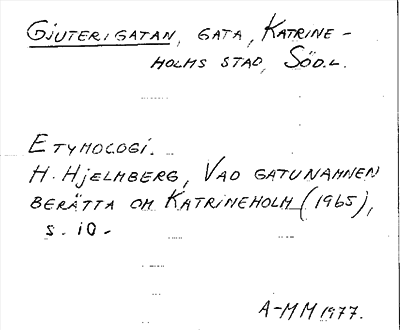 GJUTERIGATAN, GATA, KATRINE-
HOLMS STAD, SÖDL.
ETYMOLOGI.
H. HJELMBERG, VAD GATUNAMNEN
BERÄTTA OM KATRINEHOLM (1965),
s. 10.
A-MM 1977.